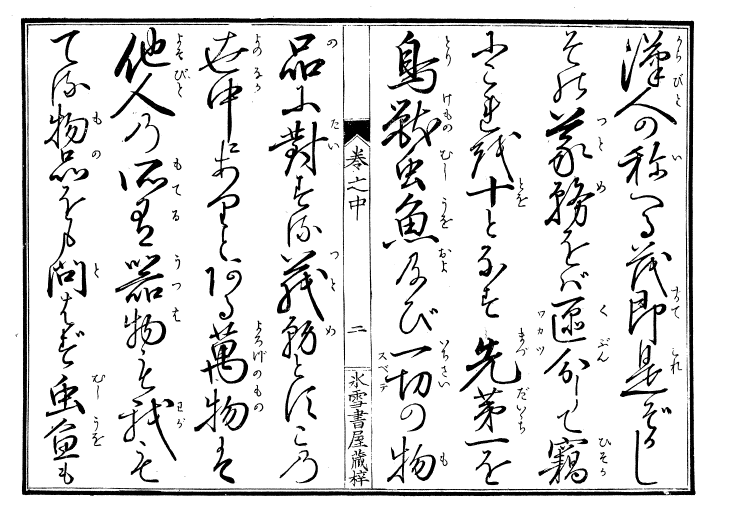 漢人の称へる義即是ぞかし
その義務をバ區分して竊
にこれを十となす先第一を
鳥獣虫魚及び一切の物
巻之中
二
氷雪書屋蔵梓
品に對する義務とすこの
世中にありとある萬物は
他人の所有器物も我も
てる物品をも問はず虫魚も